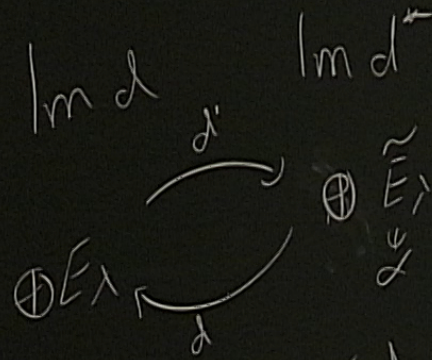 Im d Im d*
d*
⊕ Ẽλ
ψ
α
⊕Eλ
d